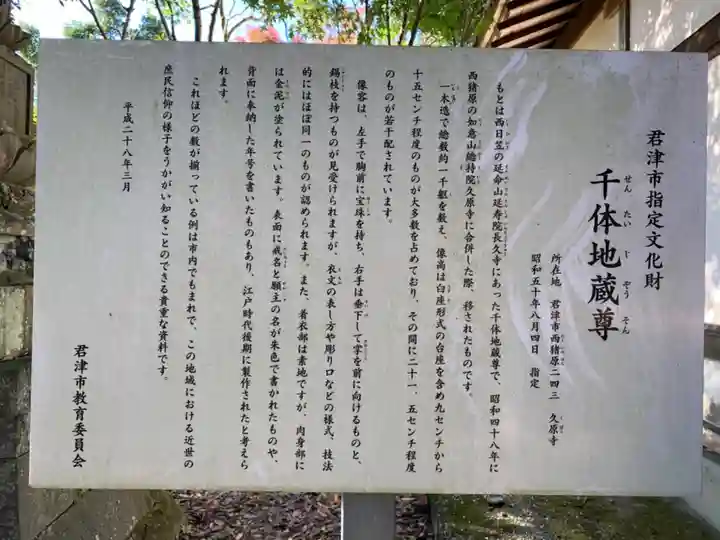 君津市指定文化財
千体地蔵尊
せんたいじぞうそん
所在地 君津市西猪原二四三 久原寺
昭和五十年八月四日 指定
もとは西日笠の延命山延寿院長久寺にあった千体地蔵尊で、昭和四十八年に
西猪原の如意山總持院久原寺に合併した際、移されたものです。
一木造で総数約一千軀を数え、像高は臼座形式の台座を含め九センチから
十五センチ程度のものが大多数を占めており、その間に二十一．五センチ程度
のものが若干配されています。
像容は、左手で胸前に宝珠を持ち、右手は垂下して掌を前に向けるものと、
錫杖を持つものが見受けられますが、衣文の表し方や彫り口などの様式、技法
的にはほぼ同一のものが認められます。また、着衣部は素地ですが、肉身部に
は金泥が塗られています。表面に戒名と願主の名が朱色で書かれたものや、
背面に奉納した年号を書いたものもあり、江戸時代後期に製作されたと考えら
れます。
これほどの数が揃っている例は市内でもまれで、この地域における近世の
庶民信仰の様子をうかがい知ることのできる貴重な資料です。
平成二十八年三月
君津市教育委員会